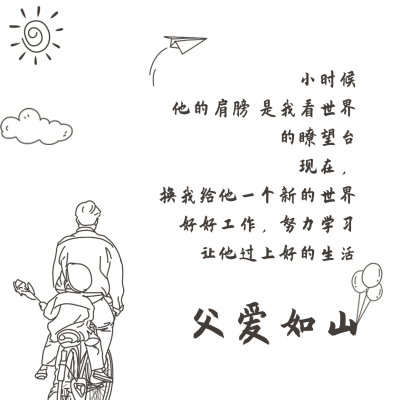 小时候
他的肩膀 是我看世界
的瞭望台
现在，
换我给他一个新的世界
好好工作，努力学习
让他过上好的生活
父爱如山